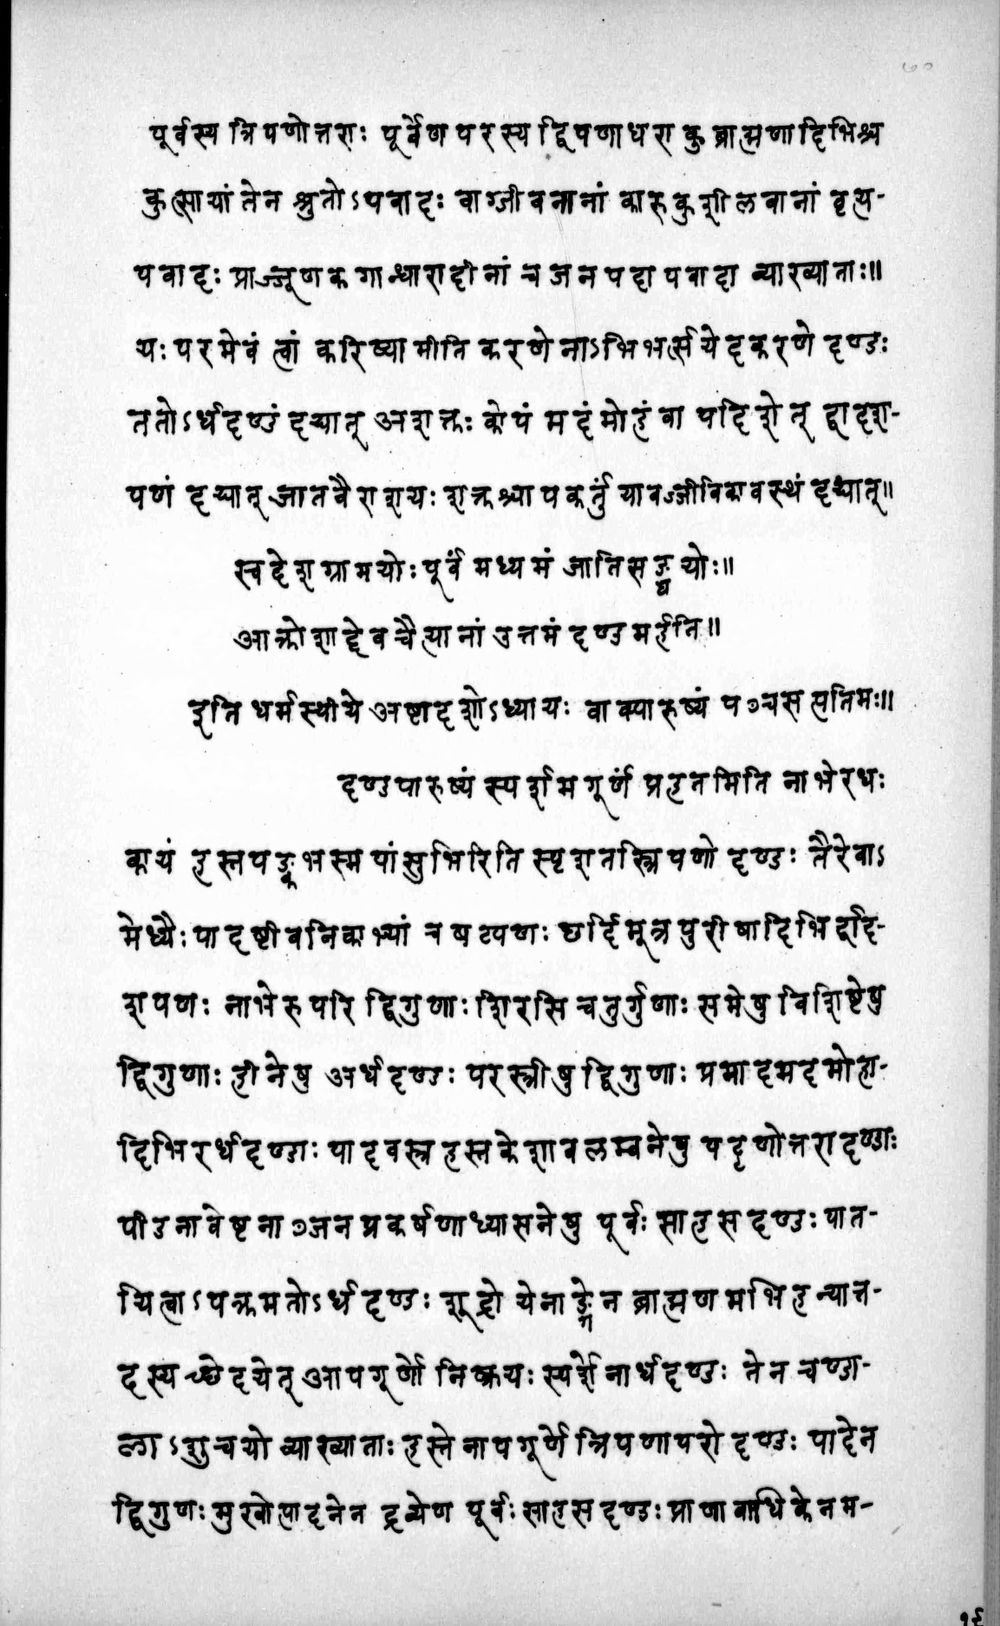 ७०
पूर्वस्य त्रिपणोत्तराः पूर्वेण परस्य द्विपणाधरा कुब्राह्मणादिभिश्च
कुत्सायां तेन श्रुतोऽपवादः वाग्जीवनानां कारुकुशीलवानां वृत्य-
पवादः प्राज्जूणकगान्धारादीनां च जनपदापवादा व्याख्याताः॥
यः परमेवं त्वां करिष्यामीति करणेनाऽभिभर्त्सयेदकरणे दण्डः
ततोऽर्धदण्डं दद्यात् अशक्तः कोपं मदं मोहं वा पदिशेत् द्वादश-
पणं दद्यात् जातवैराशयः शक्तश्चापकर्तुं यावज्जीविकावस्थं दद्यात्॥
स्वदेशग्रामयोः पूर्वं मध्यमं जातिसङ्घयोः॥
आक्रोशाद्देवचैत्यानां उत्तमं दण्डमर्हति॥
इति धर्मस्थीये अष्टादशोऽध्यायः वाक्पारुष्यं पञ्चसप्ततिमः॥
दण्डपारुष्यं स्पर्शमगूर्णं प्रहतमिति नाभेरधः
कायं हस्तपङ्कभस्मपांसुभिरिति स्पृशतस्त्रिपणो दण्डः तैरेवाऽ
मेध्यैः पादष्टीवनिकाभ्यां च षट्पणः छर्दिमूत्रपुरीषादिभिर्द्वाद-
शपणः नाभेरुपरि द्विगुणाः शिरसि चतुर्गुणाः समेषु विशिष्टेषु
द्विगुणाः हीनेषु अर्धदण्डः परस्त्रीषु द्विगुणाः प्रमादमदमोहा-
दिभिरर्धदण्डाः पादवस्त्रहस्तकेशावलम्बनेषु षट्पणोत्तरा दण्डाः
पीडनावेष्टनाञ्जनप्रकर्षणाध्यासनेषु पूर्वः साहसदण्डः पात-
यित्वाऽपक्रमतोऽर्धदण्डः शूद्रो येनाङ्गेन ब्राह्मणमभिहन्यात्त-
दस्य च्छेदयेत् आपगूर्णो निष्क्रयः स्पर्शेनार्धदण्डः तेन चण्डा-
लाऽशुचयो व्याख्याताः हस्तेनापगूर्णे त्रिपणापरो दण्डः पादेन
द्विगुणः मुखोत्पादनेन द्रव्येण पूर्वः साहसदण्डः प्राणाबाधिकेन म-
१९